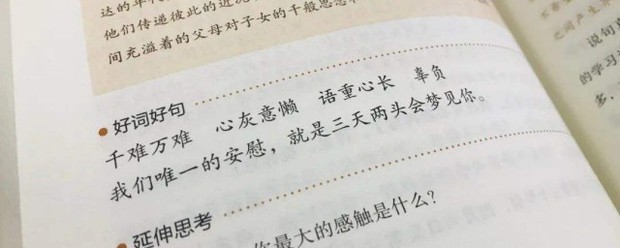 达的年代
他们传递彼此的近况
间充溢着的父母对子女的千般思念
好词好句
千难万难 心灰意懒 语重心长 辜负
我们唯一的安慰，就是三天两头会梦见你。
延伸思考
你最大的感触是什么？
之间产生
说句
的学习
多，